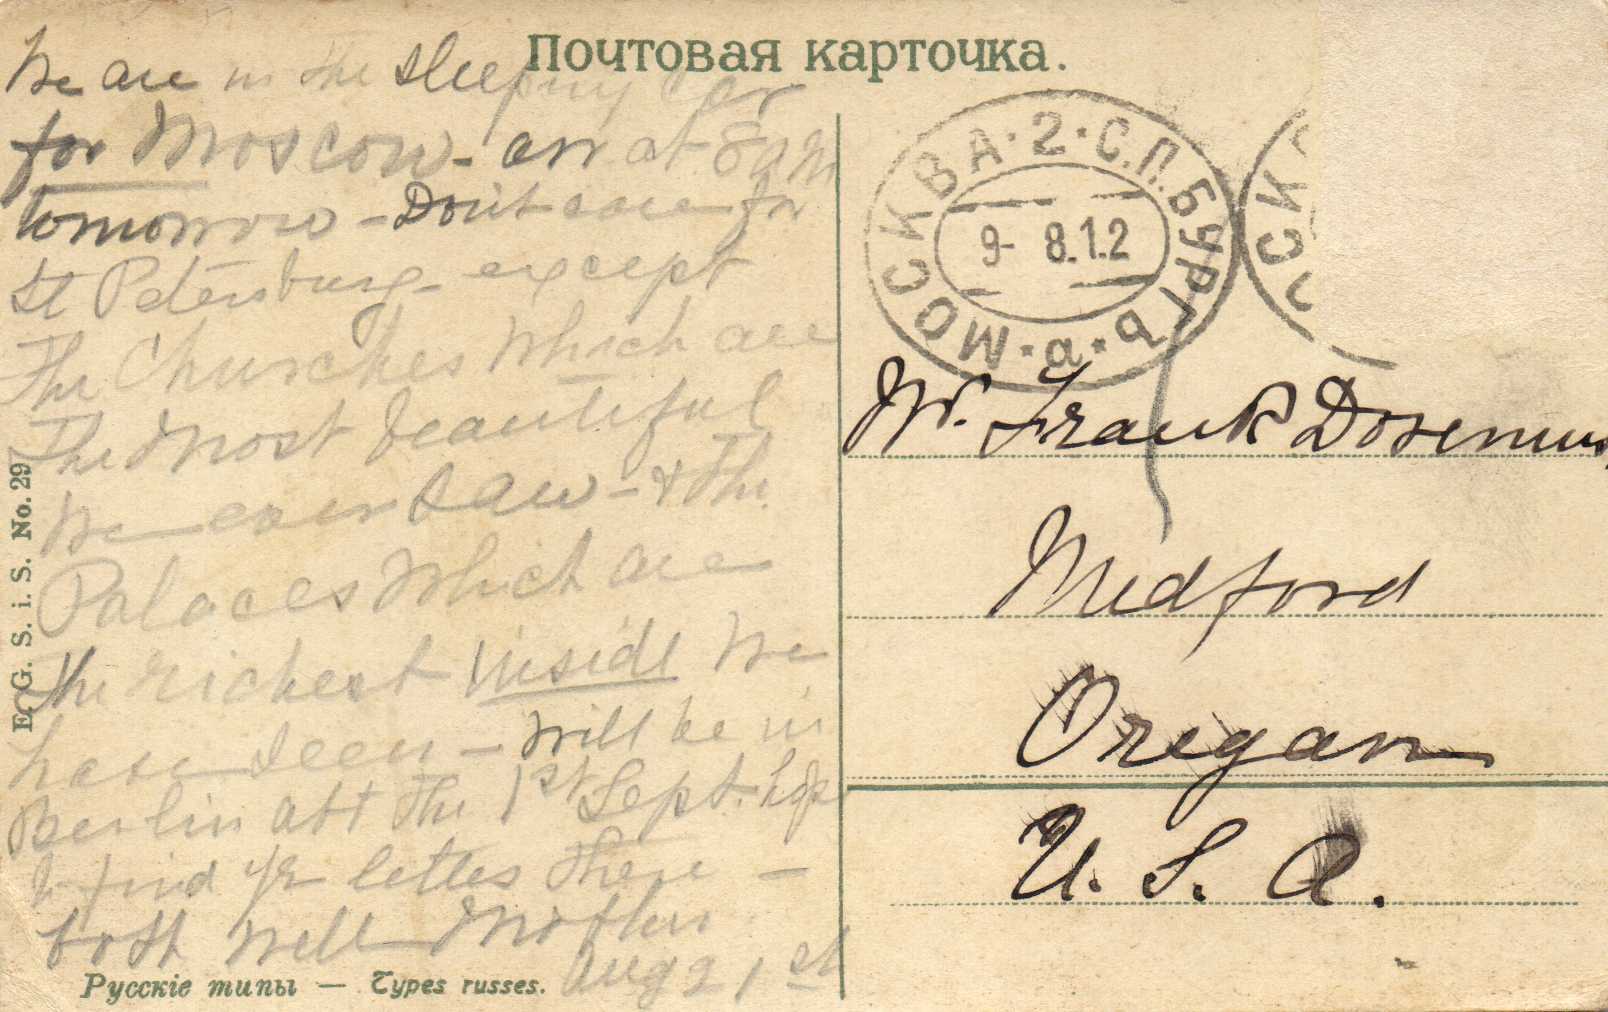 Почтовая карточка.
We are in the sleeping car
for Moscow - arr at 8 am
tomorrow - Don't care for
St Petersburg - except
The Churches which are
The most beautiful
We ever saw - & The
Palaces which are
The richest inside We
have seen - Will be in
Berlin abt the 1st Sept. hope
to find yr letters there -
both well Mother
Aug 21st
E. G. S. i. S. No. 29
Русскіе типы — Types russes.
МОСКВА · 2 · С.П.БУРГЪ · а · МОСКВА
9- 8.12
ОСК
Mr. Frank Dosemus,
Medford
Oregon
U. S. A.